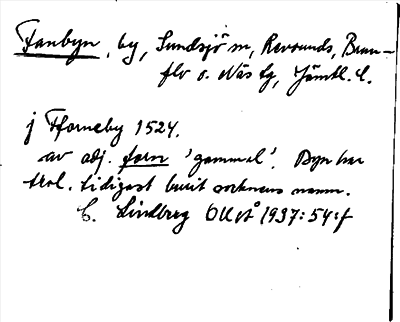 Fanbyn, by, Sundsjö sn, Revsunds, Brun-
flo o. Näs tg, Jämtl. l.
j Fforneby 1524.
av adj. forn 'gammal'. Byn har
trol. tidigast burit socknens namn.
C. Lindberg OUÅ 1937: 54:f